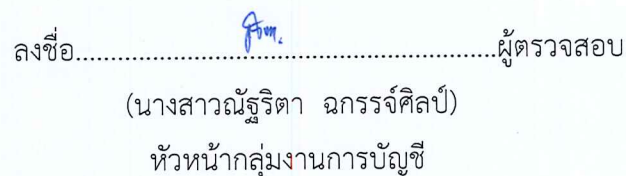 ลงชื่อ..........................................................ผู้ตรวจสอบ
(นางสาวณัฐริตา ฉกรรจ์ศิลป์)
หัวหน้ากลุ่มงานการบัญชี